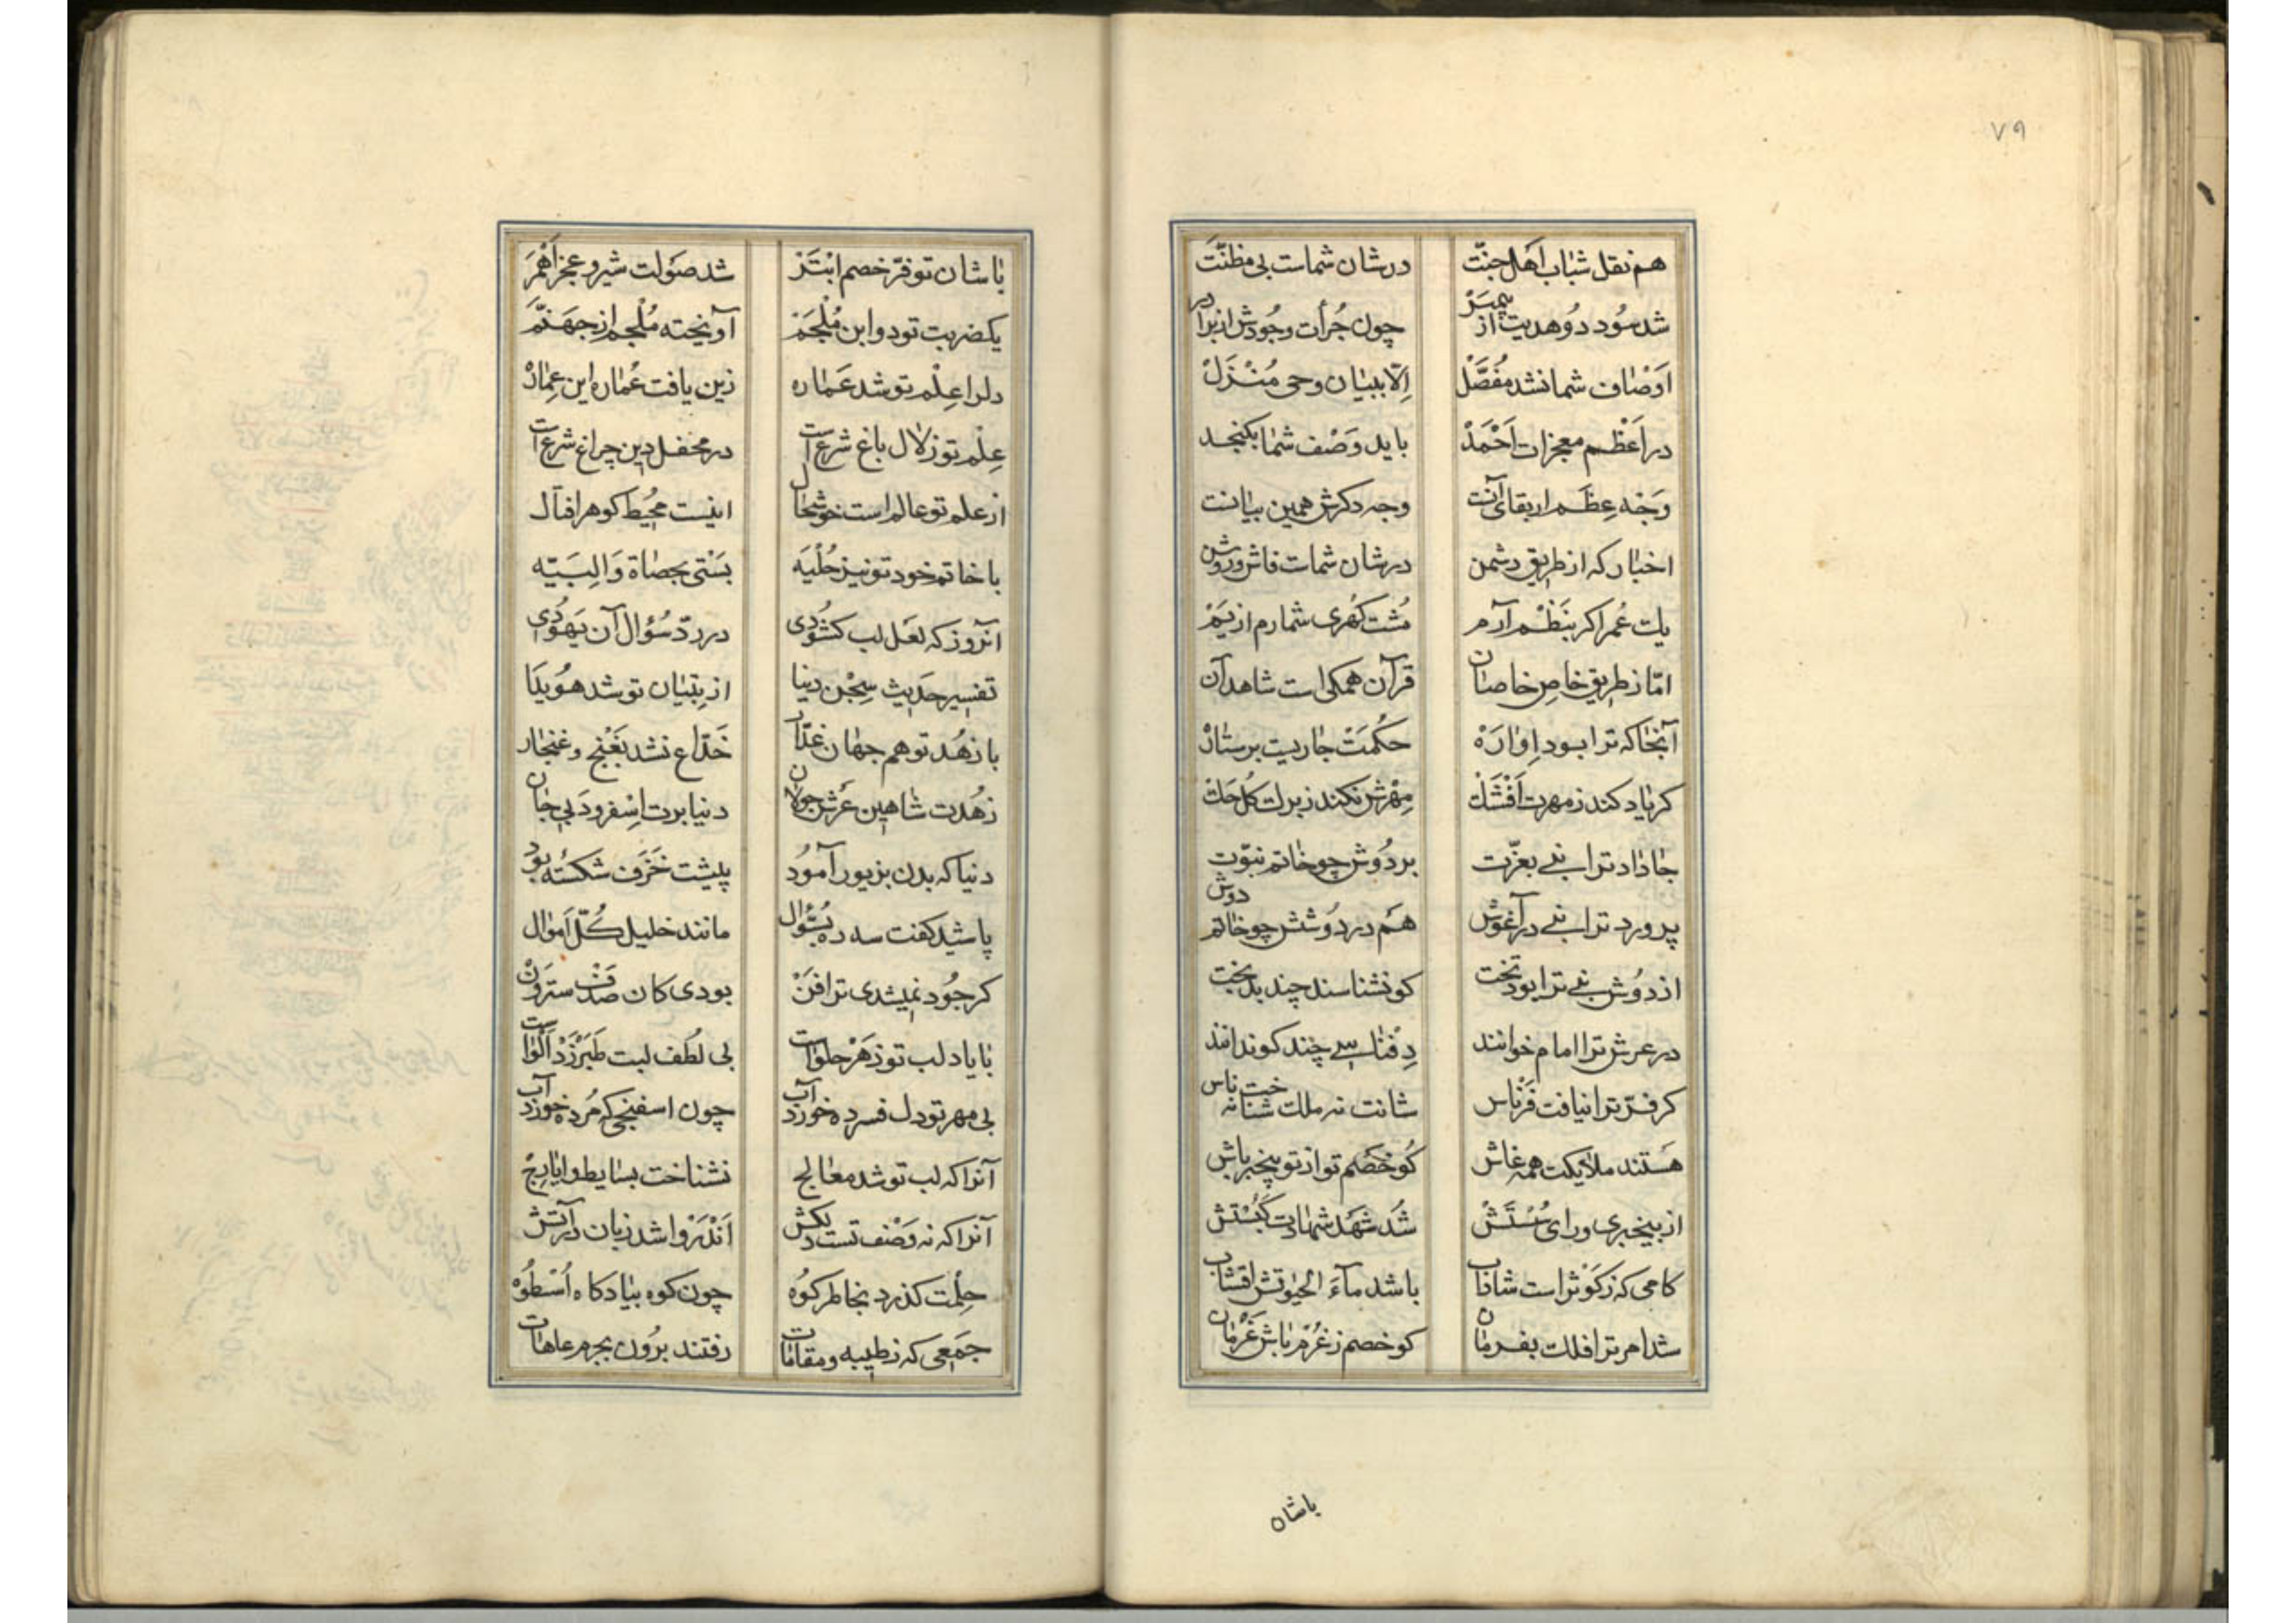 ۷۹
هم نقل شباب اهل جنّت درشان شماست بی مظنّت
شد سود دو هدیت از پیمبر چون جُرأت وجُودش از برادر
اَوْصٰاف شما نشد مُفَصَّلْ اِلّا ببیٰان وحی مُنْزَلْ
در اَعْظَم معجزات اَحْمَدْ باید وَصْف شمٰا بکنجد
وَجْه عِظَم اربقای آنت وجه دکرش همین بیٰانت
اخبٰار که از طریق دشمن درشان شمات فاش وروشن
یک عُمر اکر بنَظْم آرم مُشت کُهری شمارم از یَمْ
امّا ز طریق خاصِ خاصٰان قرآن همکی است شاهد آن
آنجٰا که ترا بود اِوٰارَهْ حکْمَتْ جٰاریست برستٰارْ
کر یٰاد کند ز مهرت اَفْشَکْ مِهْرش نکند ز برک کُل حَکْ
جٰا دٰاد ترا نبے بعزّت بر دُوش چو خٰاتم نبوّت
پرورد ترا نبے در آغوش هَم در دُوشش چو خاتم دوش
از دُوش نبے ترا بود تخت کو نشناسند چند بدبخت
در عرش ترا امام خوانند دِفنٰاسے چند کو ندانند
کر فرّ ترا نیافت فَرْنٰاس شانت نه ملک شنا نه خت ناس
هَستند ملایکت همه غاش کُو خَصْم تو از تو بیخبر باش
از بیخبری ورای سُسْتَش شُد شَهْد شهٰادت کَبَسْتش
کامی که ز کَوْثر است شاذاب باشد مآءَ الحیٰوتش اقشاب
شد امر ترا فلک بفرمٰان کو خصم ز غُرْم باش غَرْمٰان
باشان
بٰا شان تو فرّ خصم ابْتَرْ شد صَوْلت شیر و عجز اَهْمَرَ
یکضربت تو دو ابن مُلْجَمْ آویخته مُلْجم از جهَنَّمَ
دلرا عِلْم تو شد عَمٰاره زین یافت عُمٰاره این عِمٰارْ
عِلْم تو زلٰال باغ شرع است در محفل دین چراغ شرع است
از علم تو عالم است خوشحٰال اینست مُحیط کوهر افآل
با خٰاتم خود تو نیز حُلْیَه بَسْتی بحصٰاة وَالِبَیّه
آنروز که لعَل لب کشودی در ردّ سُؤال آن یَهُودی
تفسیر حَدیث سِجْن دنیا از بِتیٰان تو شد هُوَیدَا
با زهُد تو هم جهٰان غدّٰار خَدّاع نشد بَغَنْج و غنجٰار
زهُدت شاهین عَرش جولٰان دنیا برت اِسْفرود بی جٰان
دنیا که بدن بزیور آمُود پیشت خَزَف شکسْته بود
پاشید کفت سه ره بسُؤٰال مانند خلیل کُلّ اَموٰال
کر جُود نمیشدی ترا فَنْ بودی کان صدَف سترَوَنْ
بٰا یاد لب تو زهَر حلوٰاست بی لُطف لبت طَبَرْزَدْ اَلْوٰاست
بی مهر تو دل فسرده خورد آب چون اسفنجی که مُرده خورد آب
آنرا که لب تو شد معٰالج نشناخت بسٰایط و ایٰارِجْ
آنرا که نه وَصْف تست دلکش اَنْدَرْوا شد زبان در آتش
حِلْمت کذرد بخاطر کوُه چون کوه بیٰاد کاه اُسْطُوهْ
جَمعی که ز طیبه و مقامٰات رفتند برُون بجرم عاهٰات